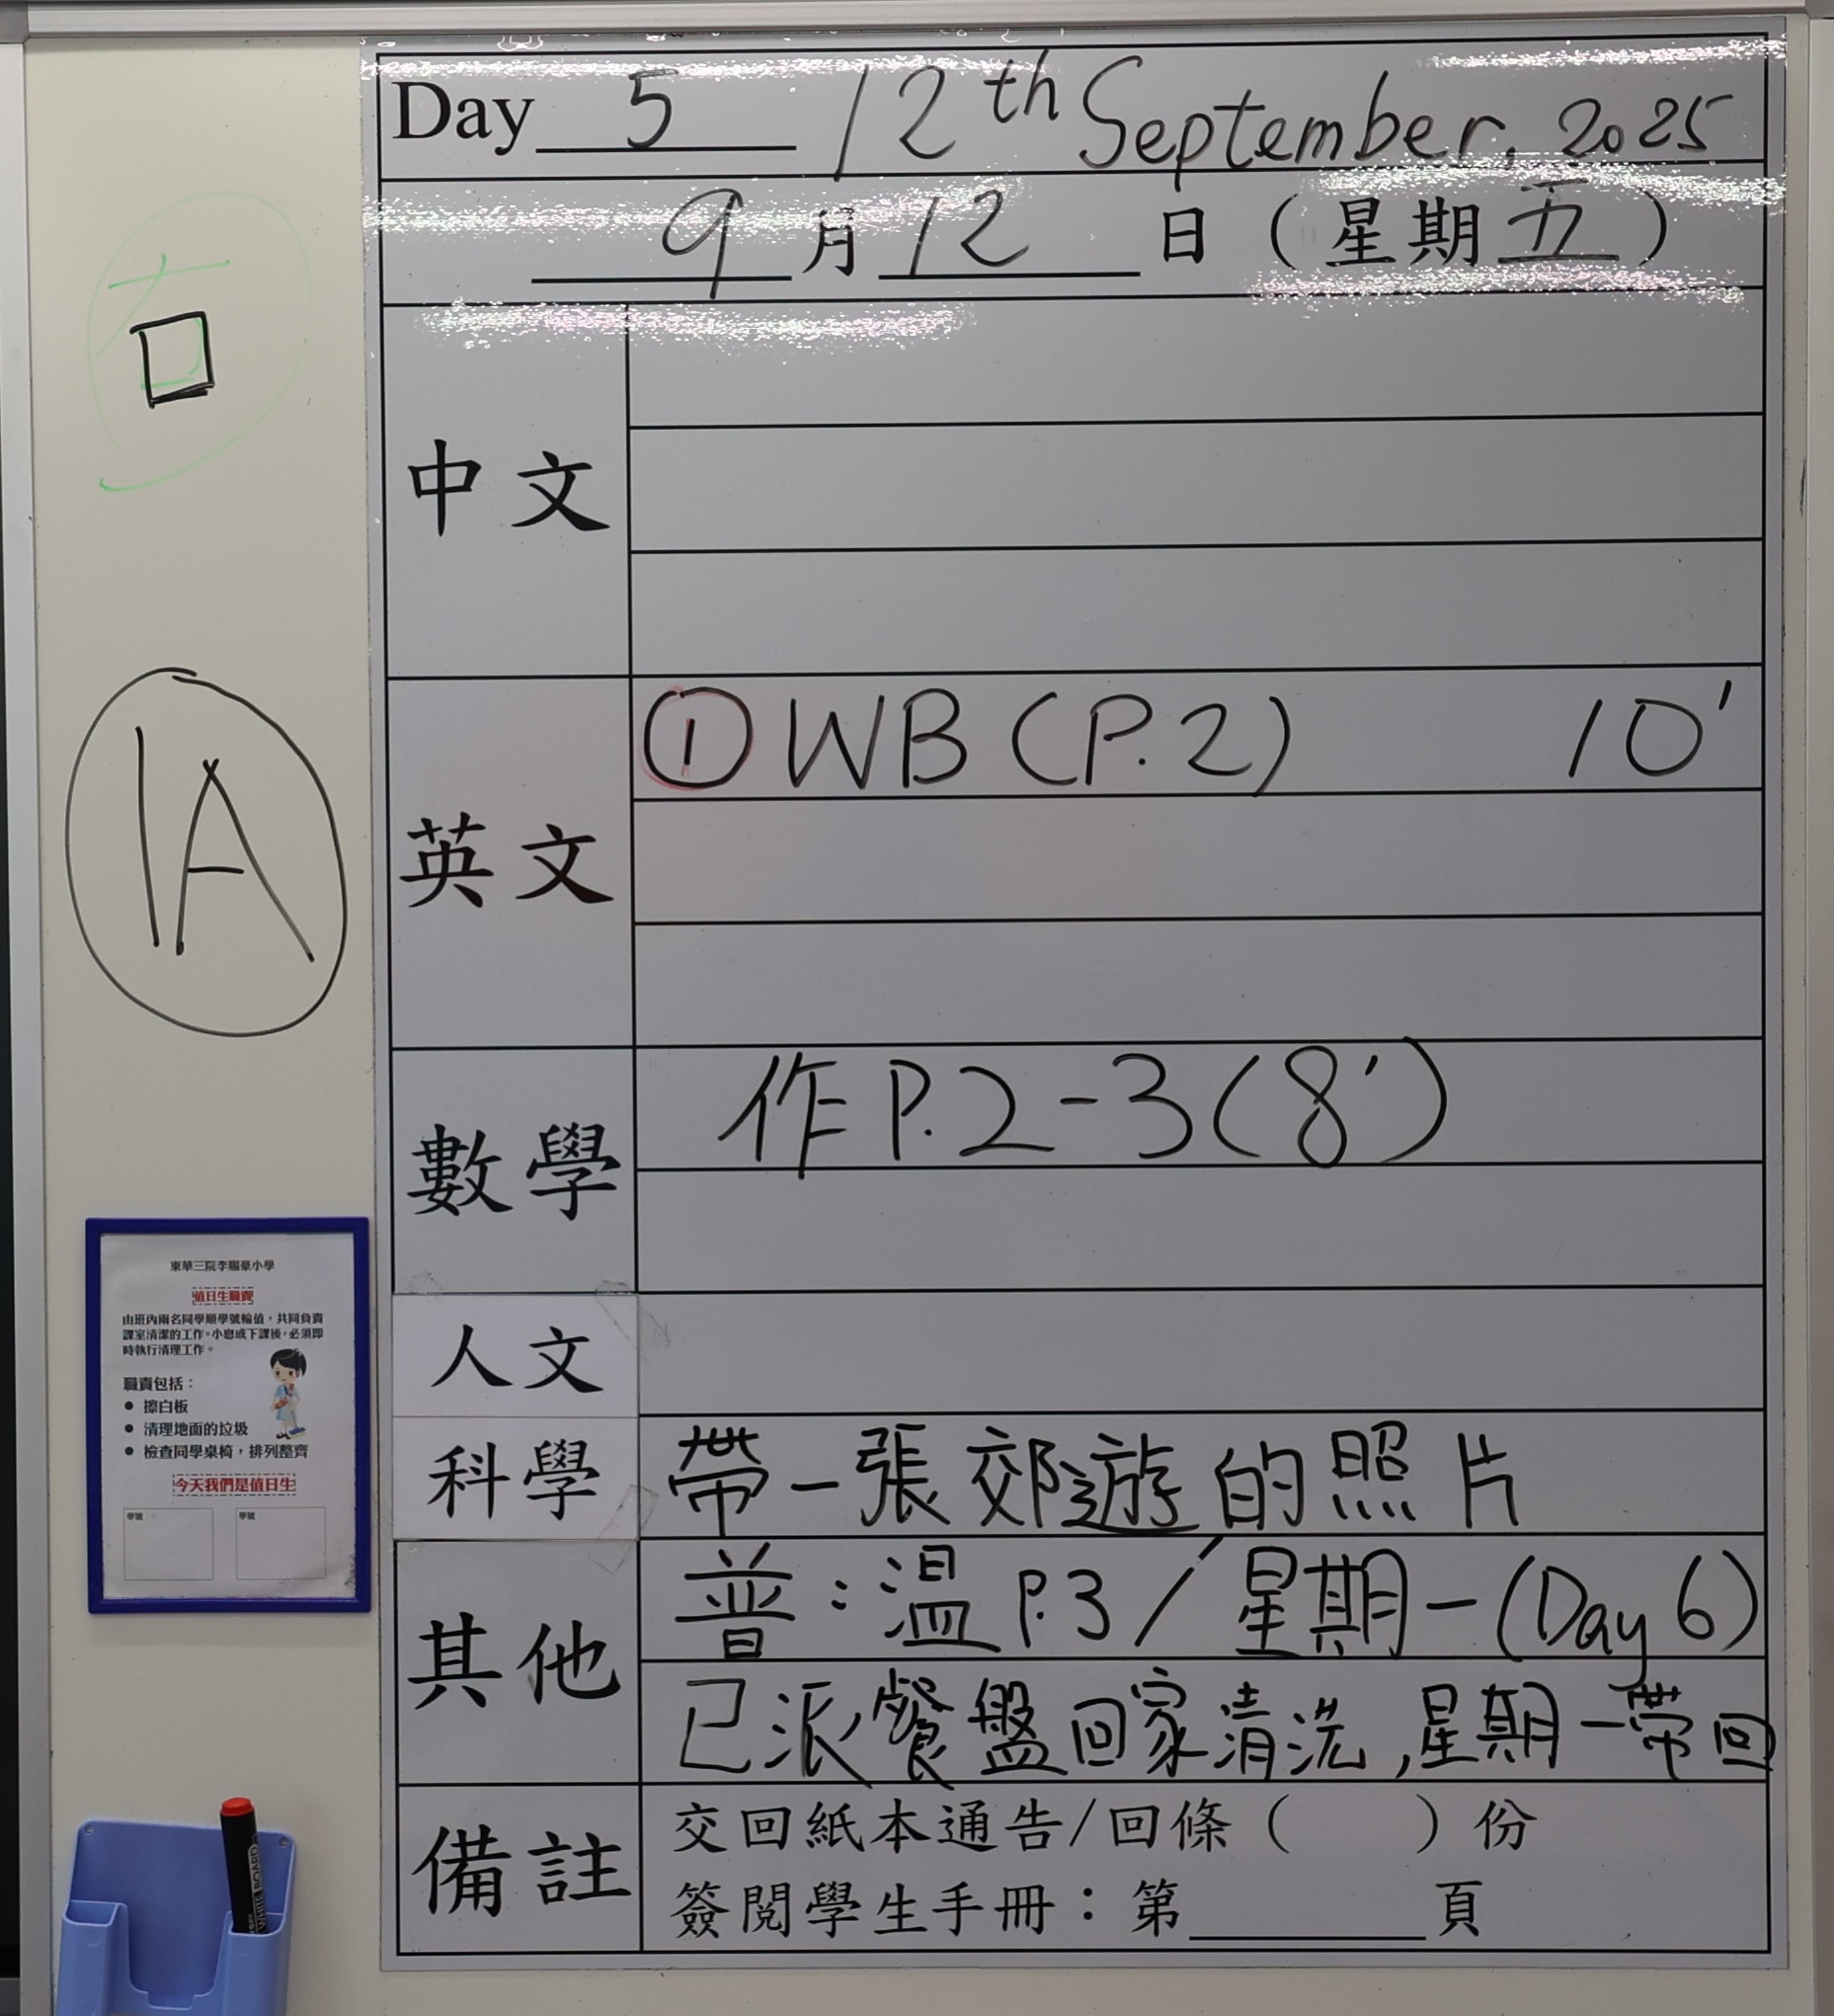 Day 5 12th September, 2025
9月12日（星期五）
右
1A
中文
英文
① WB (P.2) 10'
數學
作 P.2-3 (8')
人文
科學
帶一張郊遊的照片
其他
普：溫 P.3 / 星期一 (Day 6)
已派餐盤回家清洗，星期一帶回
備註
交回紙本通告/回條（ ）份
簽閱學生手冊：第 頁
東華三院李賜豪小學
值日生職責
由班內兩名同學順學號輪值，共同負責
課室清潔的工作。小息或下課後，必須即
時執行清理工作。
職責包括：
● 擦白板
● 清理地面的垃圾
● 檢查同學桌椅，排列整齊
今天我們是值日生
學號 學號